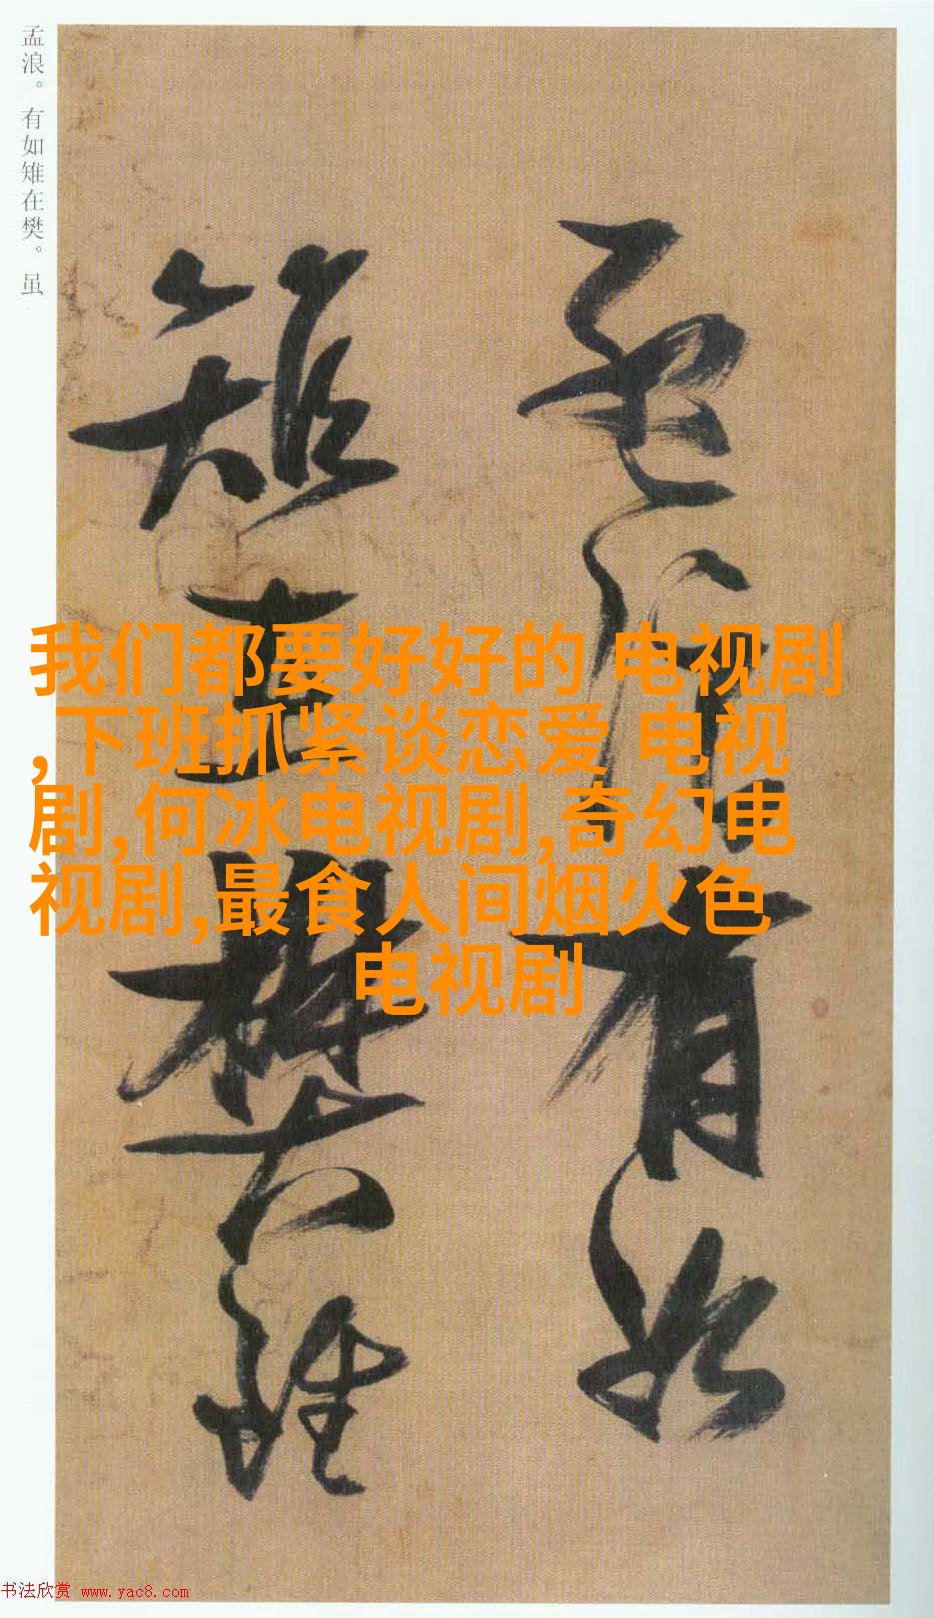 孟浪。有如雉在樊。虽
孟浪有如
雉在樊雖
我们都要好好的 电视剧
,下班抓紧谈恋爱 电视
剧,何冰电视剧,奇幻电
视剧,最食人间烟火色
电视剧
书法欣赏 www.yac8.com